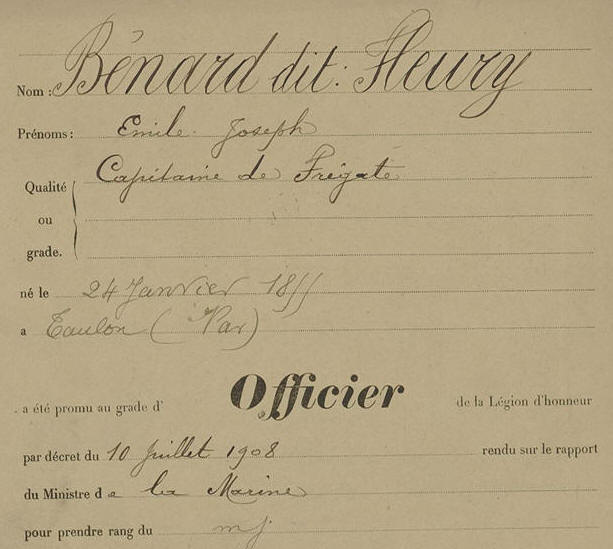 Nom : Bénard dit : Fleury
Prénoms : Emile Joseph
Qualité Capitaine de Frégate
ou
grade.
né le 24 Janvier 1855
a Toulon (Var)
a été promu au grade d' Officier de la Légion d'honneur
par décret du 10 Juillet 1908 rendu sur le rapport
du Ministre de la Marine
pour prendre rang du mj